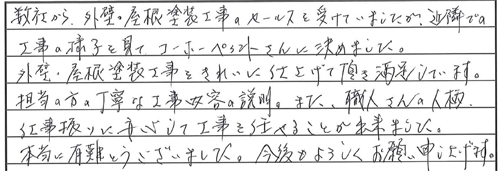 数社から、外壁・屋根塗装工事のセールスを受けていましたが、近隣での
工事の様子を見てコーホーペイントさんに決めました。
外壁・屋根塗装工事をきれいに仕上げて頂き満足しています。
担当の方の丁寧な工事内容の説明。また、職人さんの人柄、
仕事振りに安心して工事を任せることが出来ました。
本当に有難とうございました。今後かよろしくお願い申し上げます。